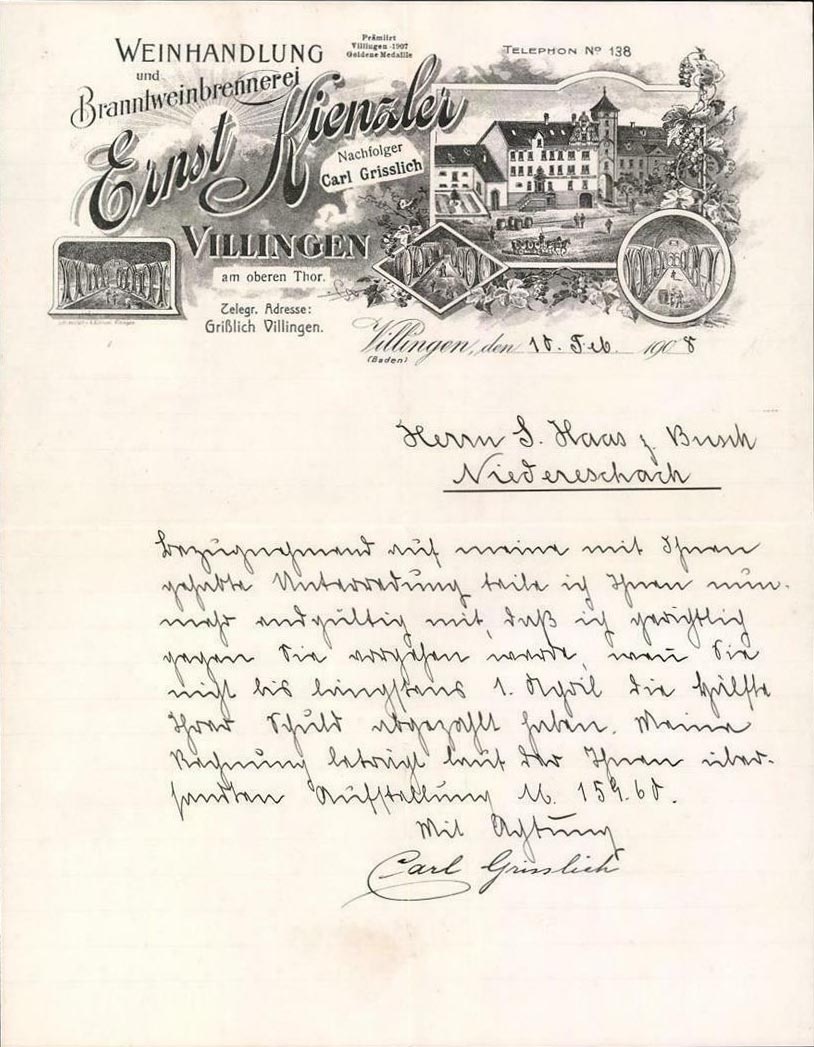 WEINHANDLUNG
und
Branntweinbrennerei
Prämiirt
Villingen 1907
Goldene Medaille
TELEPHON No 138
Ernst Kienzler
Nachfolger
Carl Grisslich
VILLINGEN
am oberen Thor.
Telegr. Adresse:
Grißlich Villingen.
Villingen, den 10. Feb. 1908
(Baden)
Herrn S. Haas z. Busch
Niedereschach
Bezugnehmend auf meine mit Ihnen
gehabte Unterredung teile ich Ihnen nun-
mehr endgültig mit, daß ich gerichtlich
gegen Sie vorgehen werde, wen̄ Sie
nicht bis längstens 1. April die Hälfte
Ihrer Schuld abgezahlt haben. Meine
Rechnung beträgt laut der Ihnen über-
sandten Aufstellung M. 159.60.
Mit Achtung
Carl Grisslich